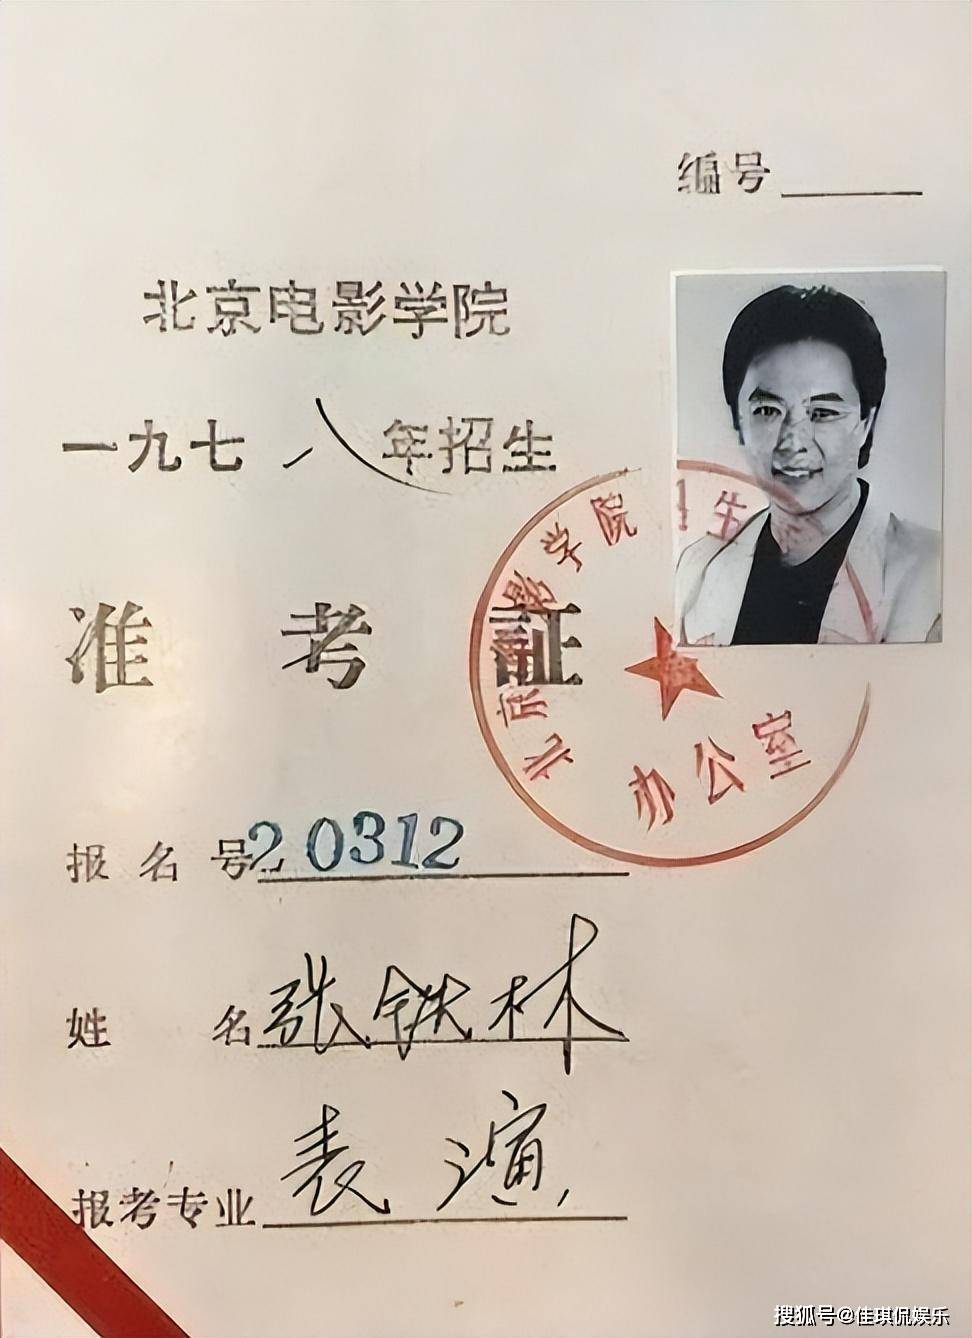 编号
北京电影学院
一九七八年招生
准考证
北京电影学院 生
办公室
报名号20312
姓名张铁林
报考专业表演
搜狐号@佳琪侃娱乐